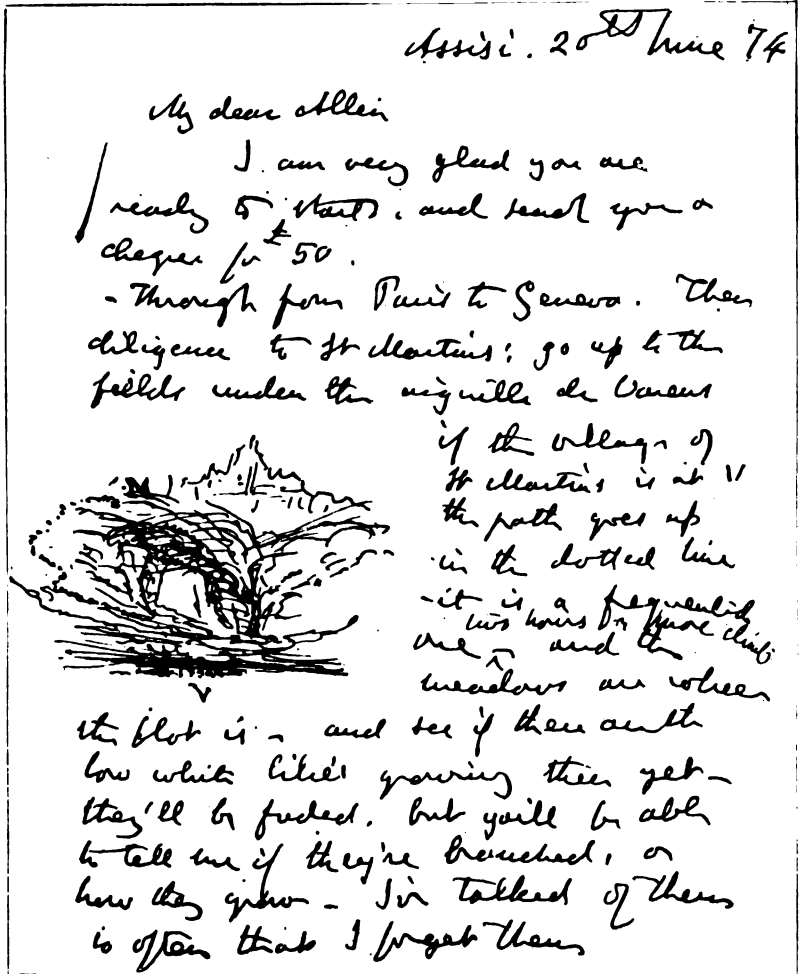 Assisi. 20th June '74
My dear Allen
I am very glad you are
ready to start, and send you a
cheque for £50.
- Through from Paris to Geneva. Then
diligence to St Martins; go up to the
fields under the aiguille de Varens
if the village of
St Martin's is at V
the path goes up
in the dotted line
- it is a frequented
two hours or more climb
one - and the
meadows are where
the blot is - and see if there are the
low white lilies growing there yet -
they'll be faded. but you'll be able
to tell me if they're branched, or
how they grow - I've talked of them
so often that I forget them
V